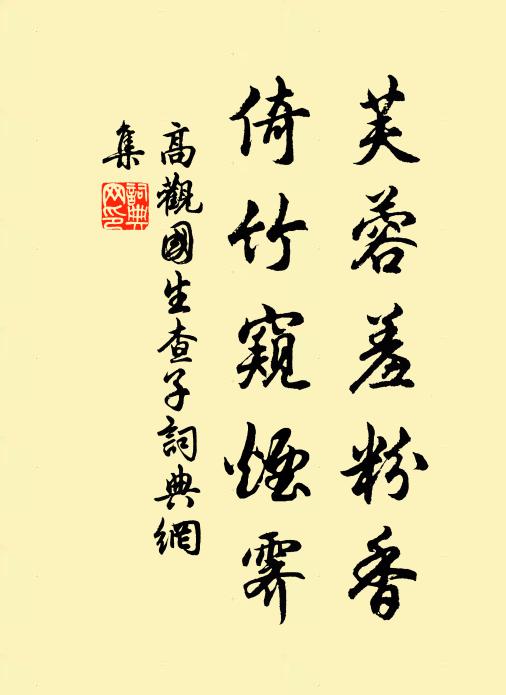 芙蓉羞粉香
倚竹窺煙霽
高觀國生查子詞典網
集
詞典網印